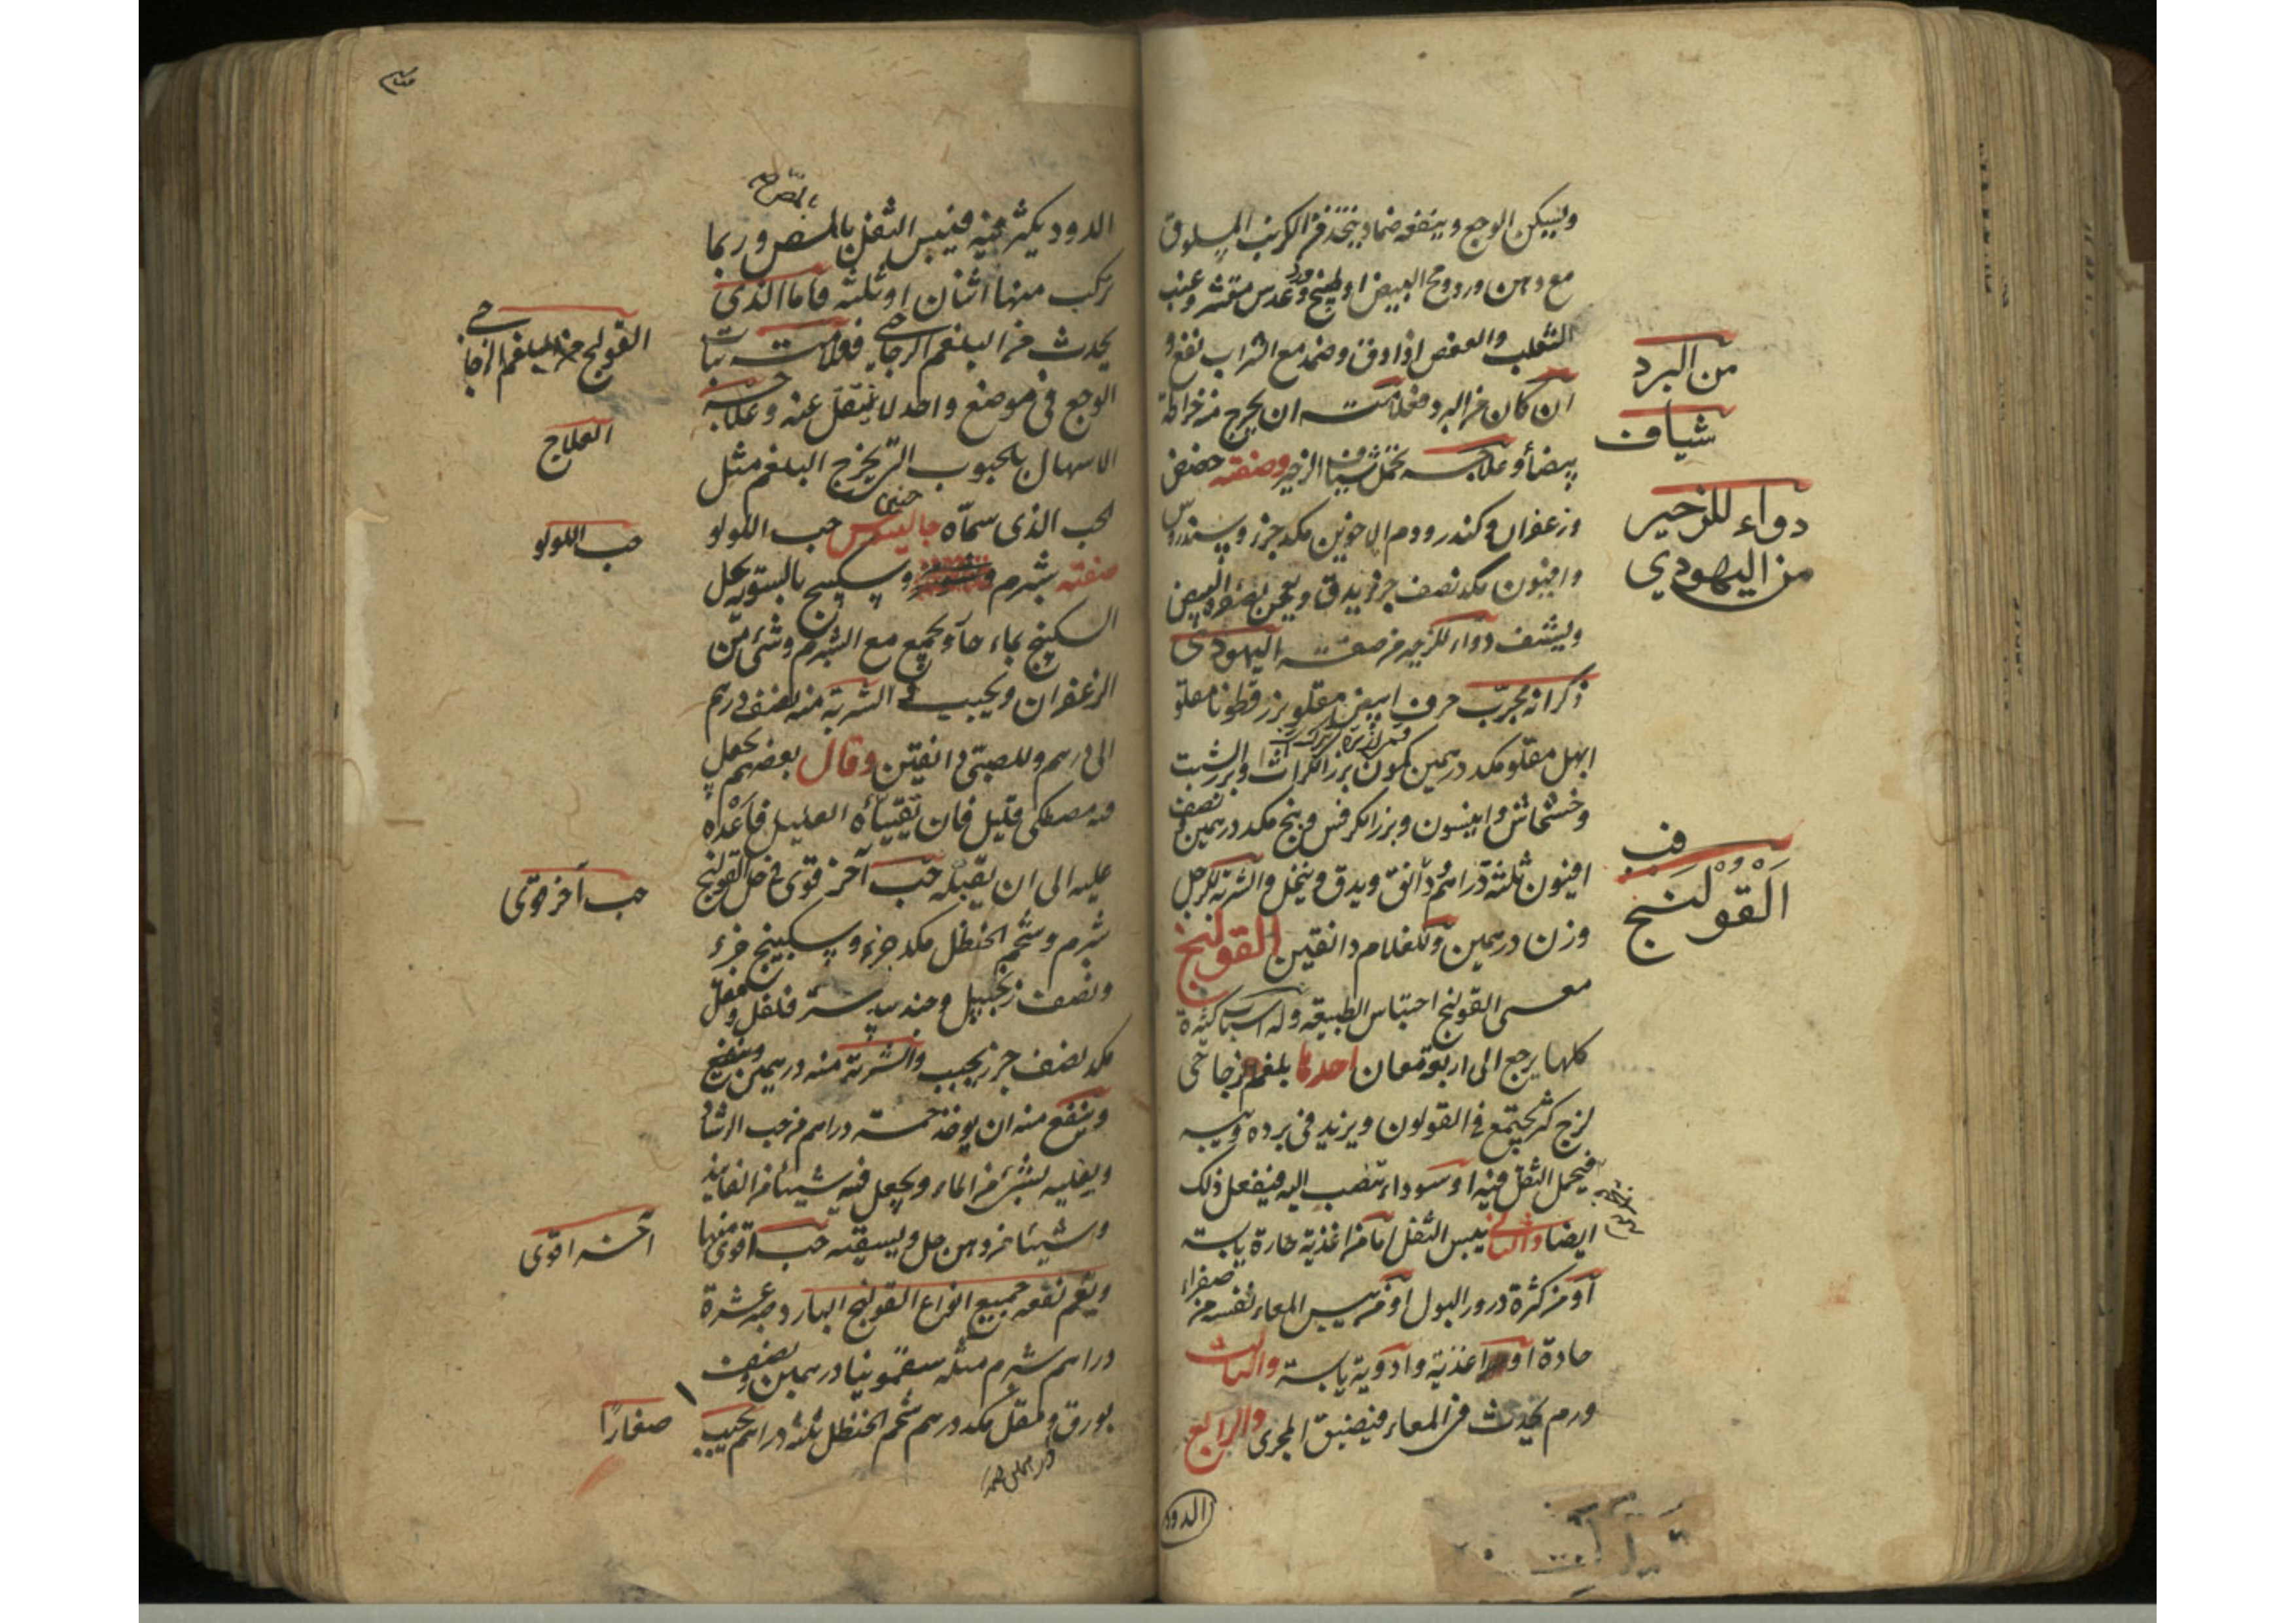 ويسكن الوجع وينفعه ضماد يتخذ من الكرنب المسلوق
مع دهن ورد ومح البيض او طبيخ ورد وعدس مقشر وعنب
الثعلب والعفص اذا دق وضمد مع الشراب نفع و
ان كان من البرد فعلامته ان يخرج منه خراطة
من البرد
بيضاء وعلاجه تحمل شياف الزحير وصفته حضض
شياف
وزعفران وكندر ودم الاخوين مكد جزء وسندروس
دواء للزحير
من اليهودي
وافيون مكد نصف جزء يدق ويعجن بصفرة البيض
ويشيف دواء للزحير من صفة اليهودي
ذكر انه مجرب حرف ابيض مقلو بزر قطونا مقلو
ابهل مقلو مكد درهمين كمون بزر الكراث وبزر الشبت
وخشخاش وانيسون وبزر الكرفس وبنج مكد درهمين ونصف
افيون ثلثة دراهم دانق ويدق وينخل والشربة للرجل
في
القولنج
وزن درهمين وللغلام دانقين القولنج
معنى القولنج احتباس الطبيعة وله اسباب كثيرة
كلها يرجع الى اربعة معان احدها بلغم زجاجي
لزج كثير يجتمع في القولون ويزيد في برده ويبسه
فيحمل الثفل فيه او سوداء تنصب اليه فيفعل ذلك
ايضا والثاني يبس الثفل اما من اغذية حارة يابسة
او من كثرة درور البول او من يبس المعاء نفسه من صفراء
حادة او اغذية وادوية يابسة والثالث
ورم يحدث في المعاء فيضيق المجرى والرابع
الدود
الدود يكثر فيه فيبس الثفل بالمص وربما
تركب منها اثنان او ثلثة فاما الذي
يحدث من البلغم الزجاجي فعلامته ثبات
القولنج من البلغم الزجاجي
الوجع في موضع واحد لا ينتقل عنه وعلاجه
العلاج
الاسهال بالحبوب التي يخرج البلغم مثل
الحب الذي سماه جالينوس حب اللولو
حب اللولو
صفته شبرم وسكبينج بالسوية يحل
السكبينج بماء حار ويجمع مع الشبرم وشيء من
الزعفران ويحبب الشربة منه نصف درهم
الى درهم وللصبي دانقين وقال بعضهم يجعل
فيه مصطكى قليل فان تقيأه العليل فاعده
عليه الى ان يقبله حب آخر قوي في حل القولنج
حب آخر قوي
شبرم وشحم الحنظل مكد جزء وسكبينج جزء
ونصف زنجبيل وجندبيدستر فلفل ومقل
مكد نصف جزء يحبب والشربة منه درهمين
وينفع منه ان يوخذ خمسة دراهم من حب الرشاد
ويغليه بشيء من الماء ويجعل فيه شيئا من الفانيذ
وشيئا من دهن حل ويسقيه حب اقوى منها
آخر اقوى
ويعم نفعه جميع انواع القولنج البارد صبر عشرة
دراهم شبرم مثله سقمونيا درهمين ونصف
بورق ومقل مكد درهم شحم الحنظل ثلثة دراهم يحبب
صغارا